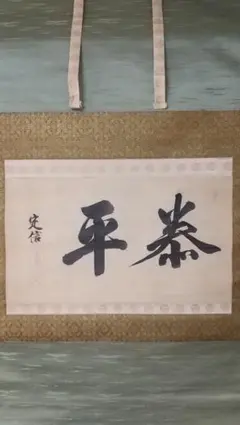 泰平
定信